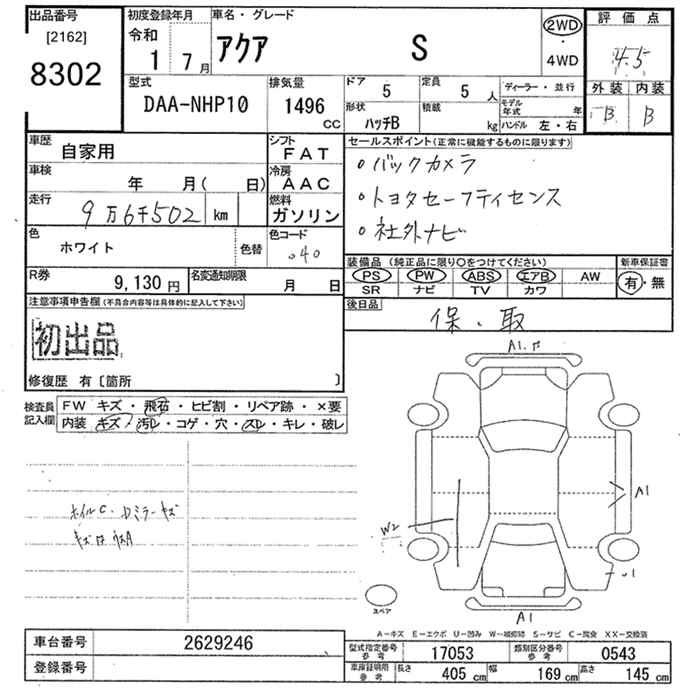 出品番号
[2162]
8302
初度登録年月
令和
1 7月
車名・グレード
アクア S
2WD
・
4WD
評価点
4.5
外装 内装
B B
型式
DAA-NHP10
排気量
1496
CC
ドア
5
定員
5 人
形状
ハッチB
積載
kg
ディーラー・並行
モデル年式 年
ハンドル 左・右
車歴
自家用
シフト
FAT
車検
年 月( 日)
冷房
AAC
走行
9万6千502 km
燃料
ガソリン
色
ホワイト
色替
色コード
040
R券
9,130 円
名変通知期限
月 日
セールスポイント(正常に機能するものに限ります)
・バックカメラ
・トヨタセーフティセンス
・社外ナビ
装備品 (純正品に限り〇をつけてください)
新車保証書
PS PW ABS エアB AW
SR ナビ TV カワ
有・無
後日品
保・取
注意事項申告欄(不具合内容等は具体的に記入して下さい)
初出品
修復歴 有〔箇所 〕
検査員記入欄
FW キズ・飛石・ヒビ割・リペア跡・×要
内装 キズ・汚レ・コゲ・穴・スレ・キレ・破レ
ホイルC・Dミラーキズ
A1
A1
W2
A1
スペア
A-キズ E-エクボ U-凹み W-補修跡 S-サビ C-腐食 XX-交換済
車台番号
2629246
登録番号
型式指定番号 参考
17053
類別区分番号 参考
0543
車庫証明用 参考
長さ 405 cm 幅 169 cm 高さ 145 cm